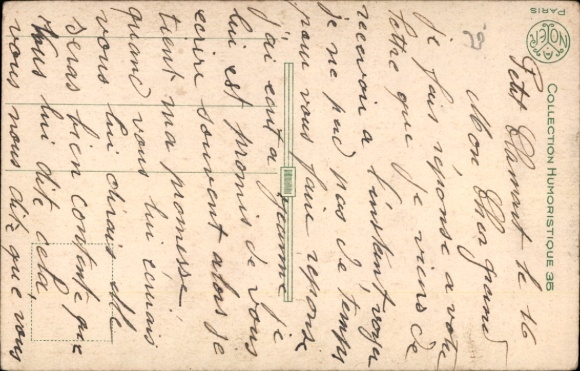 COLLECTION HUMORISTIQUE 35
NOYER
PARIS
Petit Clamart le 16
Mon Cher grand
je fais réponse a votre
lettre que je viens de
recevoir a l'instant
je ne pas de temps
pour vous faire réponse
j'ai écrit a je
lui est promis de vous
ecrire souvent alors je
tient ma promesse
quand vous lui
vous lui dirais elle
seras bien contente que
vous lui dite cela,
vous nous dite que vous